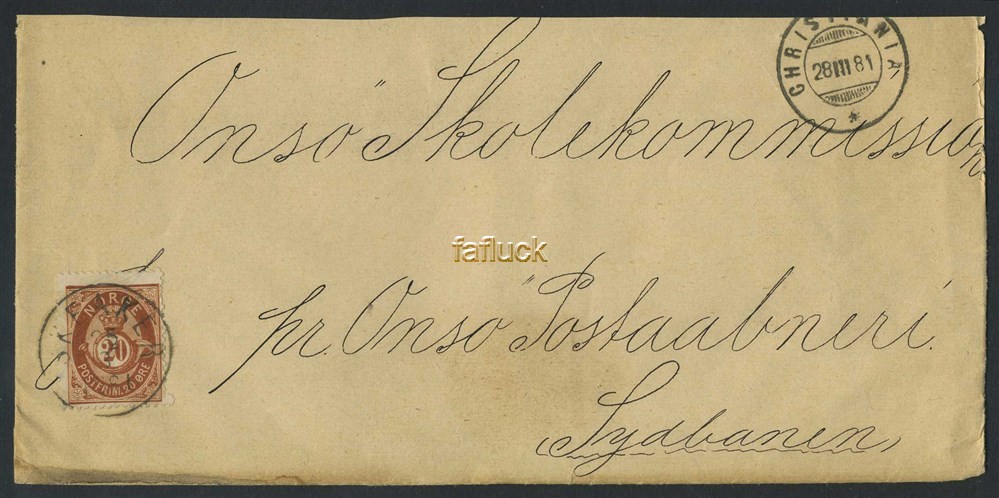 CHRISTIANIA
28 III 81
Onsö Skolekommission
fafluck
NORGE
20
POSTFRIM. 20 ØRE
pr. Onsö Postaabneri.
Sydbanen